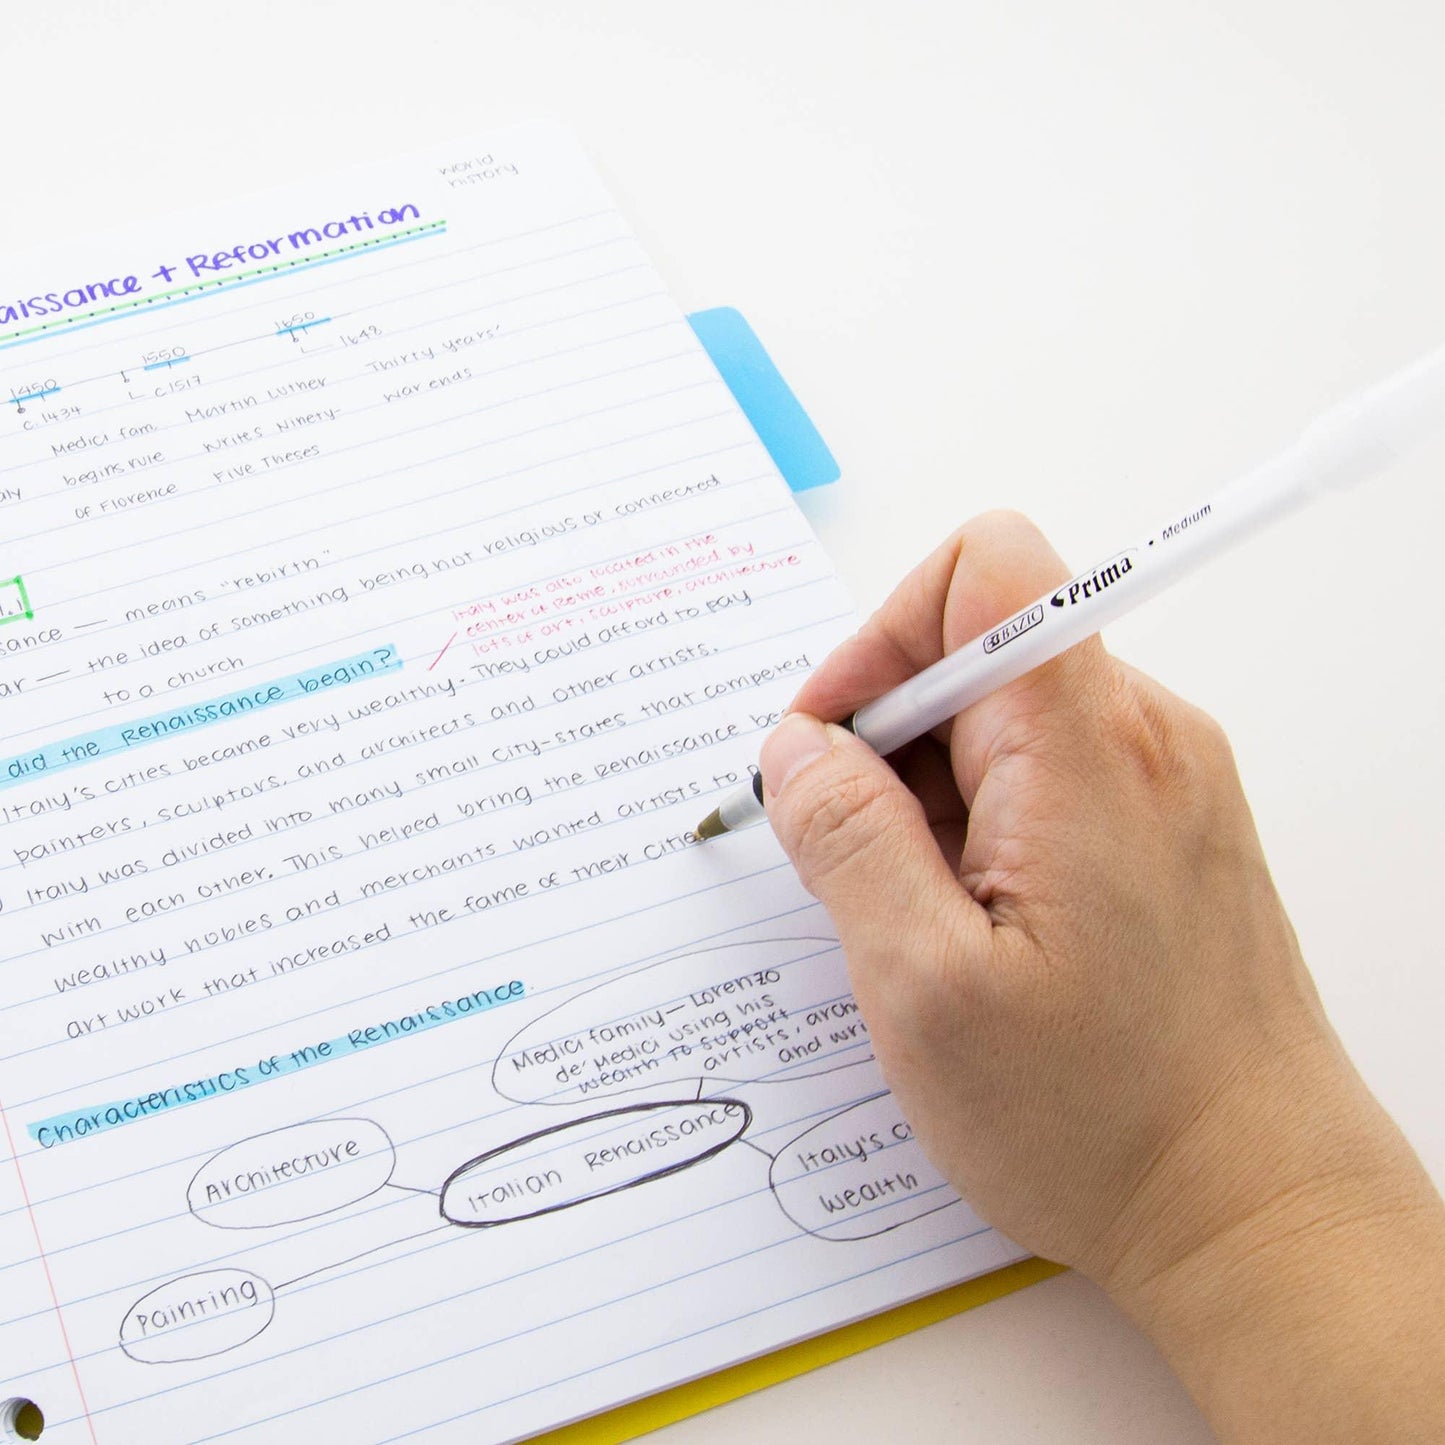 world
history
aissance + Reformation
1450 1550 1650
c.1434 c.1517 1648
Medici fam. Martin Luther Thirty years'
begins rule writes Ninety- war ends
of Florence Five Theses
means "rebirth"
the idea of something being not religious or connected
to a church
Italy was also located in the
center of Rome, surrounded by
lots of art, sculpture, architecture
did the Renaissance begin?
Italy's cities became very wealthy. They could afford to pay
painters, sculptors, and architects and other artists.
Italy was divided into many small city-states that competed
with each other. This helped bring the Renaissance
wealthy nobles and merchants wanted artists to
art work that increased the fame of their citie
Characteristics of the Renaissance.
Medici family — Lorenzo
de' Medici using his
wealth to support
artists,
and
Architecture
Italian Renaissance
Italy's
wealth
Painting
BAZIC Prima • Medium